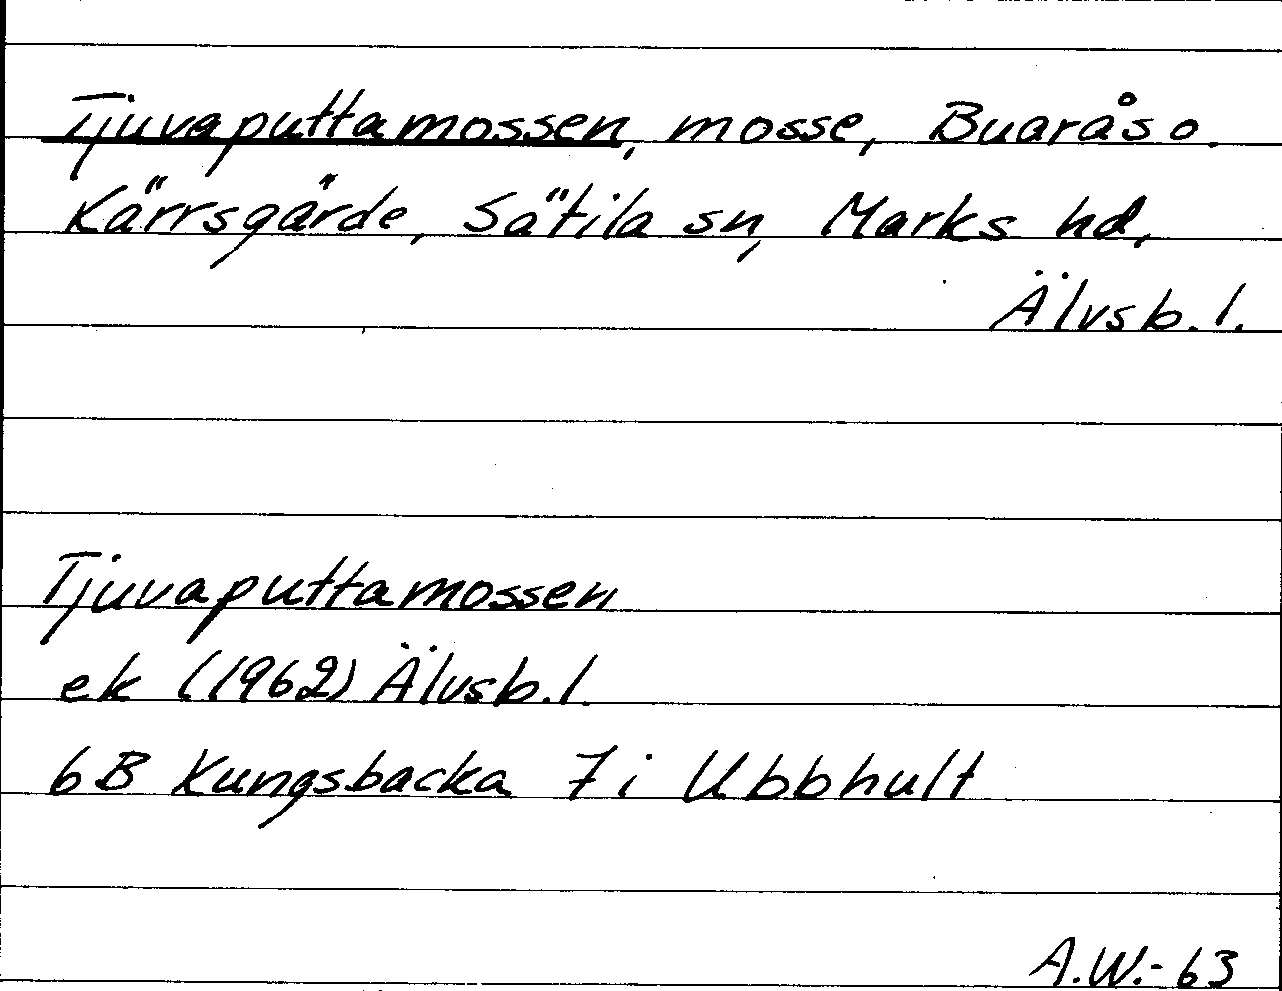 Tjuvaputtamossen, mosse, Buarås o.
Kärrsgärde, Sätila sn, Marks hd,
Älvsb. l.
Tjuvaputtamossen
ek (1962) Älvsb. l.
6B Kungsbacka 7i Ubbhult
A.W.-63